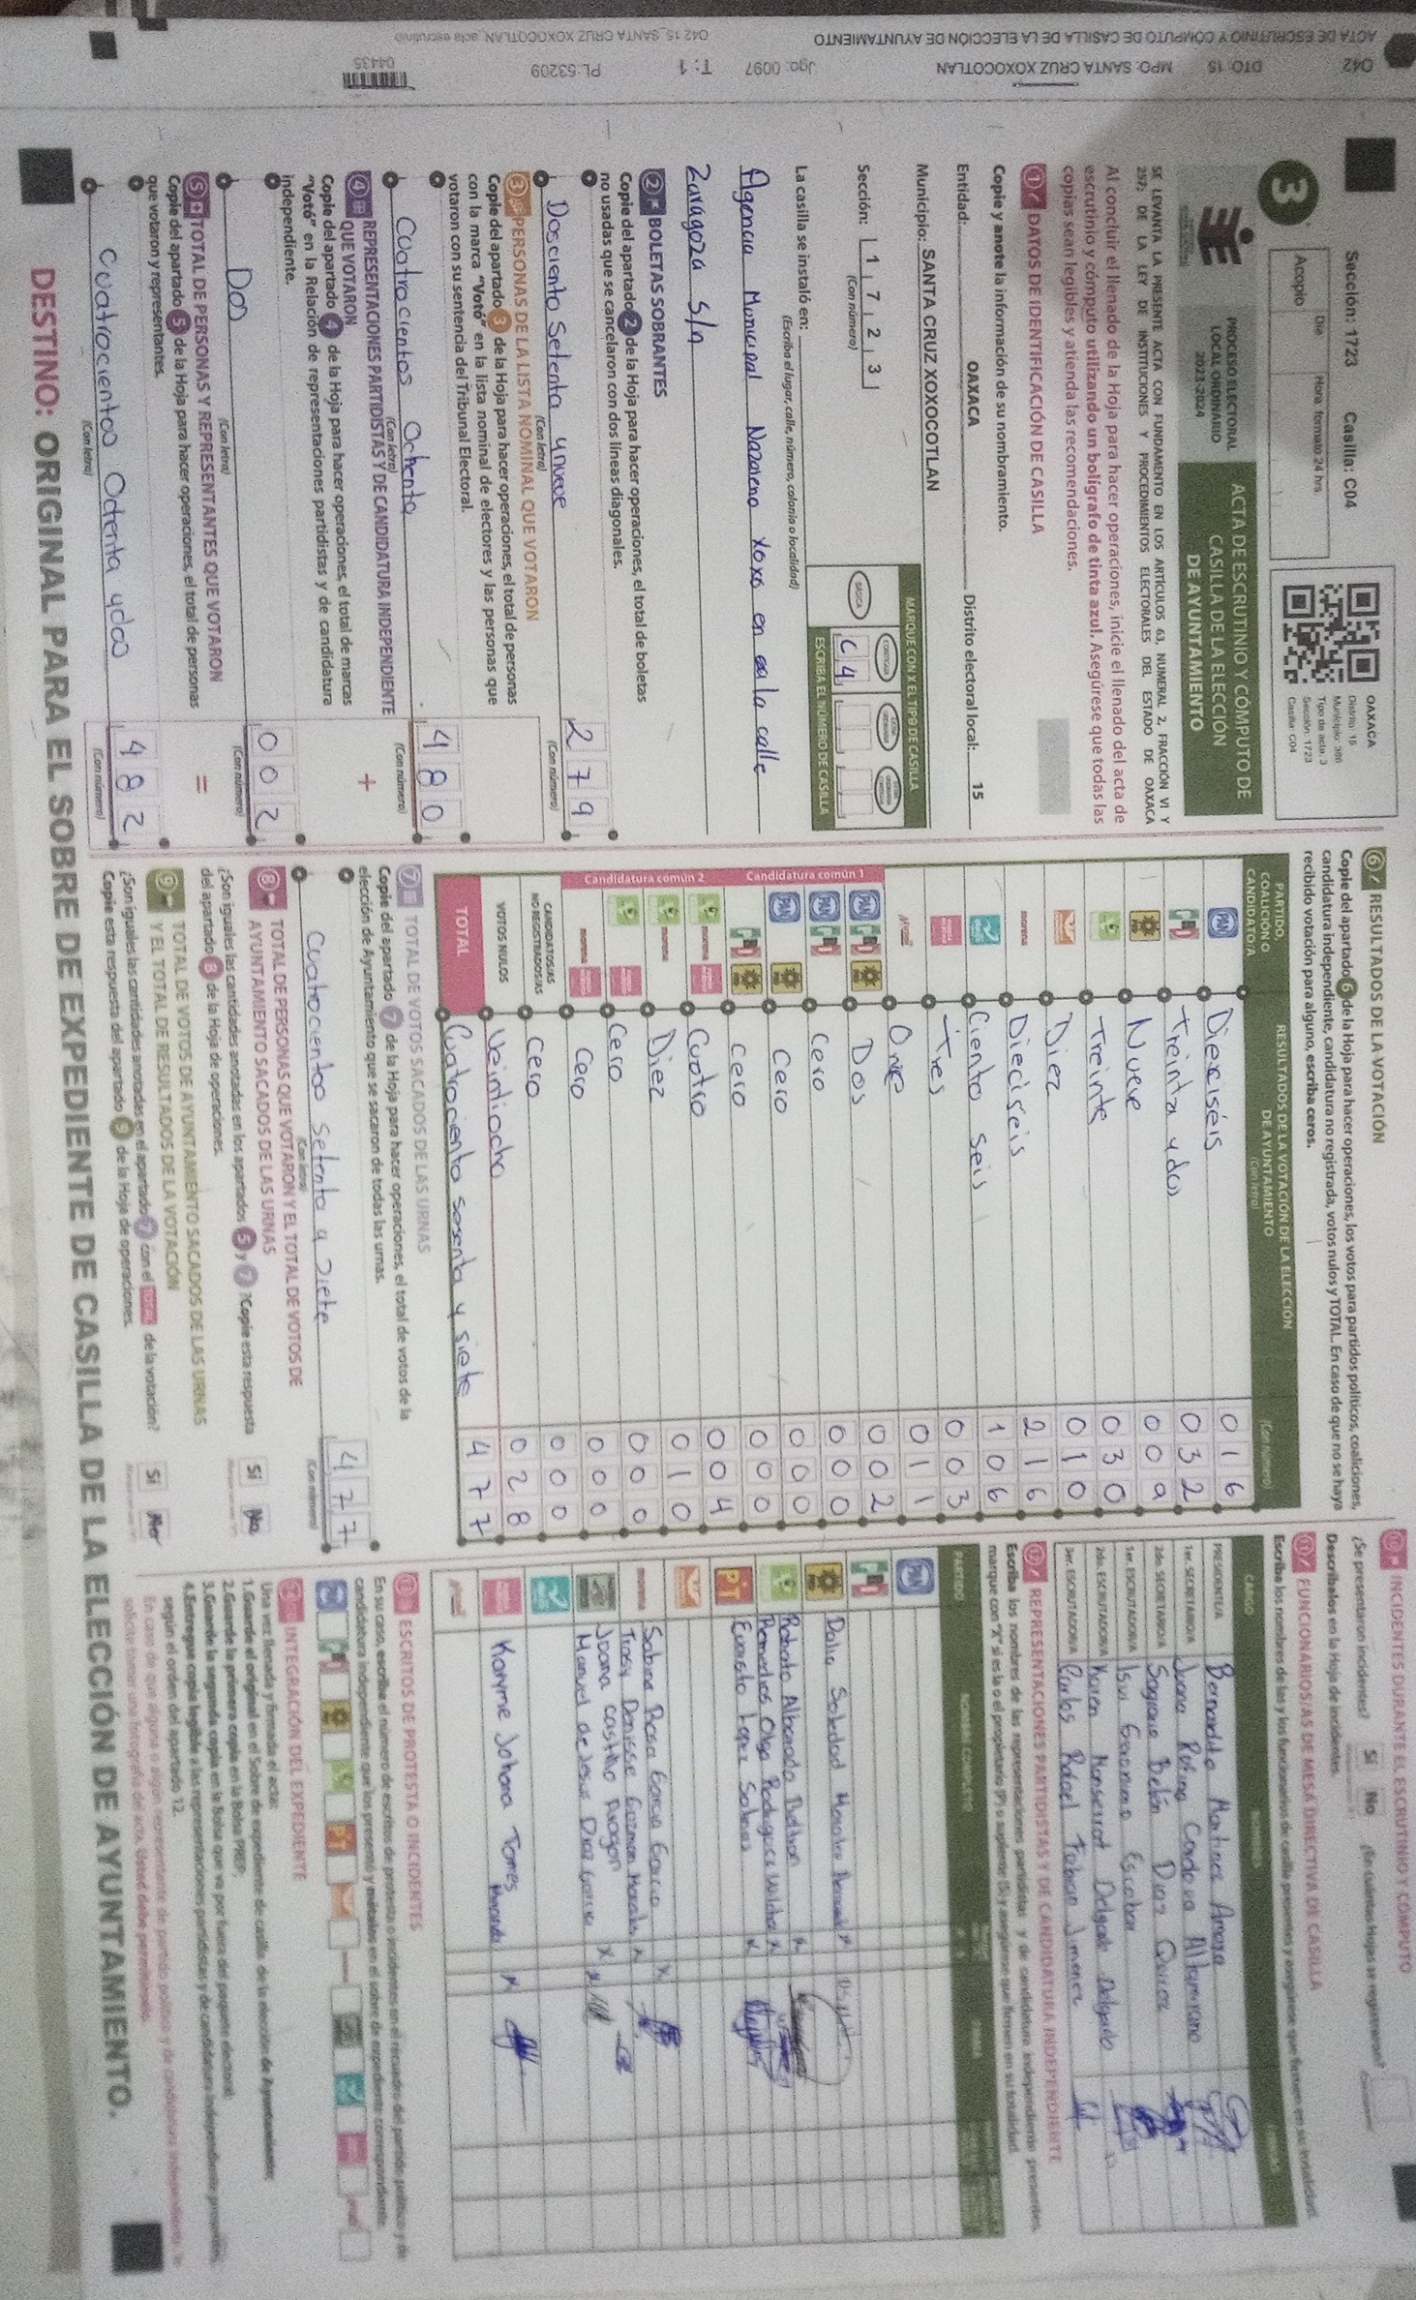 Sección: 1723 Casilla: C04
Día Hora formato 24 hrs
Acopio
OAXACA
Distrito: 15
Tipo de acta: 3
Sección: 1723
Casilla: C04
3
PROCESO ELECTORAL
LOCAL ORDINARIO
2023-2024
ACTA DE ESCRUTINIO Y CÓMPUTO DE
CASILLA DE LA ELECCIÓN
DE AYUNTAMIENTO
SE LEVANTA LA PRESENTE ACTA CON FUNDAMENTO EN LOS ARTÍCULOS 63, NUMERAL 2, FRACCIÓN VI Y
257; DE LA LEY DE INSTITUCIONES Y PROCEDIMIENTOS ELECTORALES DEL ESTADO DE OAXACA
Al concluir el llenado de la Hoja para hacer operaciones, inicie el llenado del acta de
escrutinio y cómputo utilizando un bolígrafo de tinta azul. Asegúrese que todas las
copias sean legibles y atienda las recomendaciones.
1 DATOS DE IDENTIFICACIÓN DE CASILLA
Copie y anote la información de su nombramiento.
Entidad: OAXACA Distrito electoral local: 15
Municipio: SANTA CRUZ XOXOCOTLAN
MARQUE CON X EL TIPO DE CASILLA
Sección: 1 7 2 3
(Con número)
BÁSICA
C 4
ESCRIBA EL NÚMERO DE CASILLA
La casilla se instaló en:
(Escriba el lugar, calle, número, colonia o localidad)
Agencia Municipal Nazareno Xoxo en la calle
Zaragoza S/n
2 BOLETAS SOBRANTES
Copie del apartado 2 de la Hoja para hacer operaciones, el total de boletas
no usadas que se cancelaron con dos líneas diagonales.
Dosciento Setenta ynueve 2 7 9
(Con letra) (Con número)
3 PERSONAS DE LA LISTA NOMINAL QUE VOTARON
Copie del apartado 3 de la Hoja para hacer operaciones, el total de personas
con la marca "Votó" en la lista nominal de electores y las personas que
votaron con su sentencia del Tribunal Electoral.
Cuatro cientos Ochenta 4 8 0
(Con letra) (Con número)
4 REPRESENTACIONES PARTIDISTAS Y DE CANDIDATURA INDEPENDIENTE
QUE VOTARON +
Copie del apartado 4 de la Hoja para hacer operaciones, el total de marcas
"Votó" en la Relación de representaciones partidistas y de candidatura
independiente.
Dos 0 0 2
(Con letra) (Con número)
5 TOTAL DE PERSONAS Y REPRESENTANTES QUE VOTARON
Copie del apartado 5 de la Hoja para hacer operaciones, el total de personas
que votaron y representantes. =
Cuatrocientos Ochenta y dos 4 8 2
(Con letra) (Con número)
6 RESULTADOS DE LA VOTACIÓN
Copie del apartado 6 de la Hoja para hacer operaciones, los votos para partidos políticos, coaliciones,
candidatura independiente, candidatura no registrada, votos nulos y TOTAL. En caso de que no se haya
recibido votación para alguno, escriba ceros.
PARTIDO,
COALICIÓN O
CANDIDATO/A
RESULTADOS DE LA VOTACIÓN DE LA ELECCIÓN
DE AYUNTAMIENTO
(Con letra) (Con número)
PAN Dieciséis 0 1 6
Treinta y dos 0 3 2
PRD Nueve 0 0 9
Treinta 0 3 0
Diez 0 1 0
morena Dieciseis 2 1 6
Ciento seis 1 0 6
tres 0 0 3
Once 0 1 1
Candidatura común 1
PAN PRD Dos 0 0 2
PAN Cero 0 0 0
PAN PRD Cero 0 0 0
PRD Cero 0 0 0
Candidatura común 2
morena Cuatro 0 0 4
morena Diez 0 1 0
Cero 0 0 0
morena Cero 0 0 0
CANDIDATOS/AS
NO REGISTRADOS/AS Cero 0 0 0
VOTOS NULOS Veintiocho 0 2 8
TOTAL Cuatrociento sesenta y siete 4 7 7
7 TOTAL DE VOTOS SACADOS DE LAS URNAS
Copie del apartado 7 de la Hoja para hacer operaciones, el total de votos de la
elección de Ayuntamiento que se sacaron de todas las urnas.
Cuatrocientos Setenta y siete 4 7 7
(Con letra) (Con número)
8 TOTAL DE PERSONAS QUE VOTARON Y EL TOTAL DE VOTOS DE
AYUNTAMIENTO SACADOS DE LAS URNAS
¿Son iguales las cantidades anotadas en los apartados 5 y 7? Copie esta respuesta
del apartado 8 de la Hoja de operaciones. Sí No
9 TOTAL DE VOTOS DE AYUNTAMIENTO SACADOS DE LAS URNAS
Y EL TOTAL DE RESULTADOS DE LA VOTACIÓN
¿Son iguales las cantidades anotadas en el apartado 7 con el TOTAL de la votación?
Copie esta respuesta del apartado 9 de la Hoja de operaciones. Sí No
10 INCIDENTES DURANTE EL ESCRUTINIO Y CÓMPUTO
¿Se presentaron incidentes? Sí No ¿En cuántas Hojas se registraron?
Descríbalos en la Hoja de incidentes.
11 FUNCIONARIOS/AS DE MESA DIRECTIVA DE CASILLA
Escriba los nombres de las y los funcionarios de casilla presentes y asegúrese que firmen en su totalidad.
CARGO NOMBRES
PRESIDENTE/A Bernardita Martinez Amaya
1er. SECRETARIO/A Juana Rufina Cordova Altamirano
2do. SECRETARIO/A Belén Diaz
1er. ESCRUTADOR/A Escobar
2do. ESCRUTADOR/A Karen Monserrat Delgado Delgado
3er. ESCRUTADOR/A Carlos Rafael Fabian Jimenez
12 REPRESENTACIONES PARTIDISTAS Y DE CANDIDATURA INDEPENDIENTE
Escriba los nombres de las representaciones partidistas y de candidatura independiente presentes,
marque con "X" si es la o el propietario (P) o suplente (S) y asegúrese que firmen en su totalidad.
PARTIDO NOMBRE COMPLETO
PAN
PRD Dalia Soledad
Roberto Alvarado
Remedios Olga Rodriguez
PT Evaristo Lopez
morena Sabina Rosa Garcia Garcia
Denisse Guzman Morales
Joana Castillo Aragon
Manuel de Jesus Diaz Garcia
Karyme Johana Torres
13 ESCRITOS DE PROTESTA O INCIDENTES
En su caso, escriba el número de escritos de protesta o incidentes en el recuadro del partido político y de
candidatura independiente que los presentó y métalos en el sobre de expediente correspondiente.
14 INTEGRACIÓN DEL EXPEDIENTE
Una vez llenada y firmada el acta:
1.Guarde el original en el Sobre de expediente de casilla de la elección de Ayuntamiento;
2.Guarde la primera copia en la Bolsa PREP;
3.Guarde la segunda copia en la Bolsa que va por fuera del paquete electoral;
4.Entregue copia legible a las representaciones partidistas y de candidatura independiente presentes,
según el orden del apartado 12.
En caso de que alguna o algún representante de partido político y de candidatura independiente
solicite tomar una fotografía del acta, Usted debe permitírselo.
DESTINO: ORIGINAL PARA EL SOBRE DE EXPEDIENTE DE CASILLA DE LA ELECCIÓN DE AYUNTAMIENTO.
042 DTO: 15 MPO: SANTA CRUZ XOXOCOTLAN Jgo: 0097 T: 1 PL:53209 04435
ACTA DE ESCRUTINIO Y CÓMPUTO DE CASILLA DE LA ELECCIÓN DE AYUNTAMIENTO 042 15_SANTA CRUZ XOXOCOTLAN_acta escrutinio